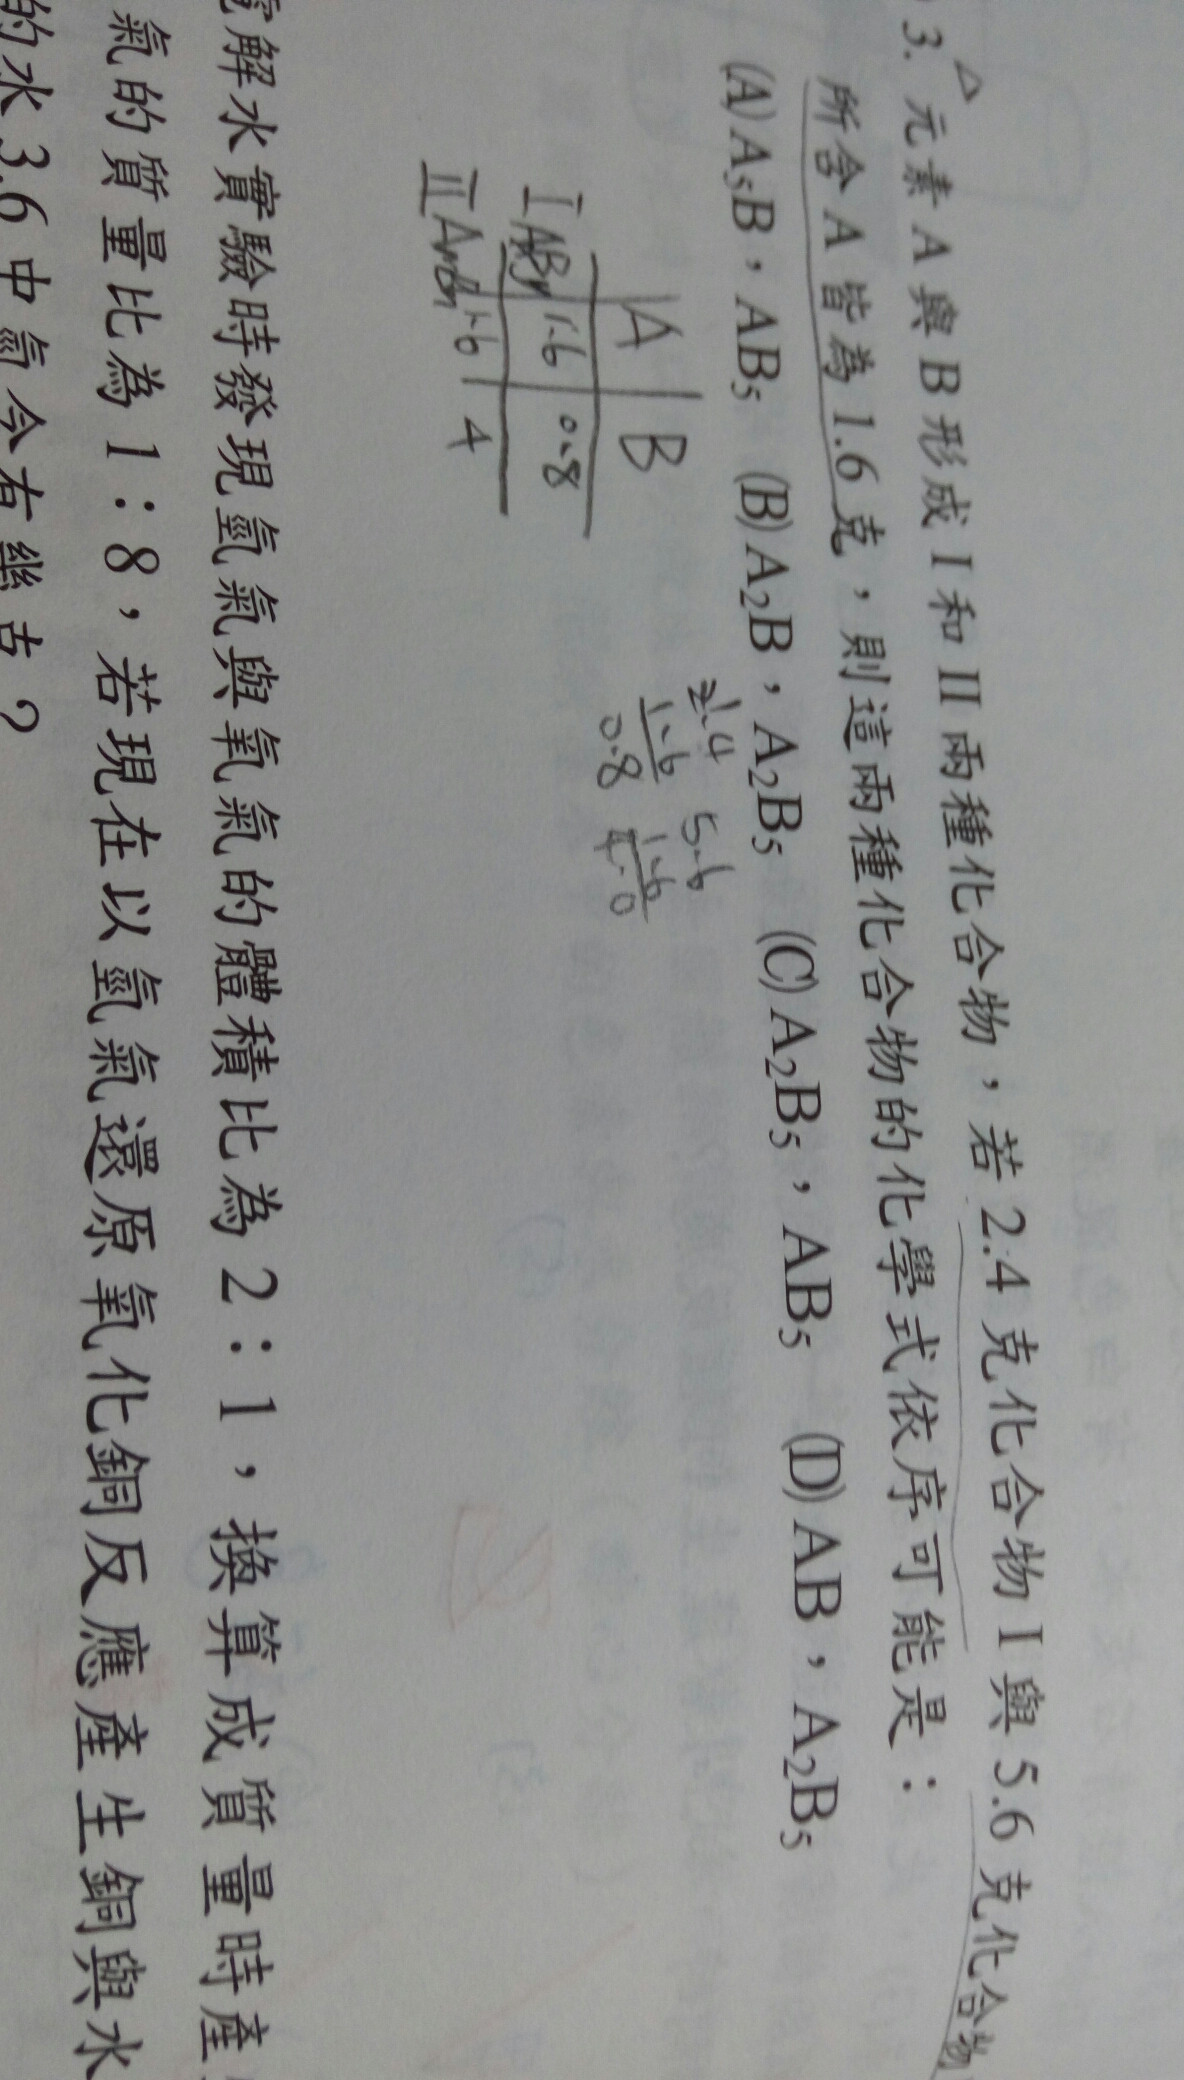 3. 元素 A 與 B 形成 I 和 II 兩種化合物，若 2.4 克化合物 I 與 5.6 克化合物
所含 A 皆為 1.6 克，則這兩種化合物的化學式依序可能是：
(A) A5B，AB5 (B) A2B，A2B5 (C) A2B5，AB5 (D) AB，A2B5
2.4 5.6
1.6 1.6
0.8 4.0
A B
I 1.6 0.8
II 1.6 4
電解水實驗時發現氫氣與氧氣的體積比為 2：1，換算成質量時產
氣的質量比為 1：8，若現在以氫氣還原氧化銅反應產生銅與水
的水 3.6